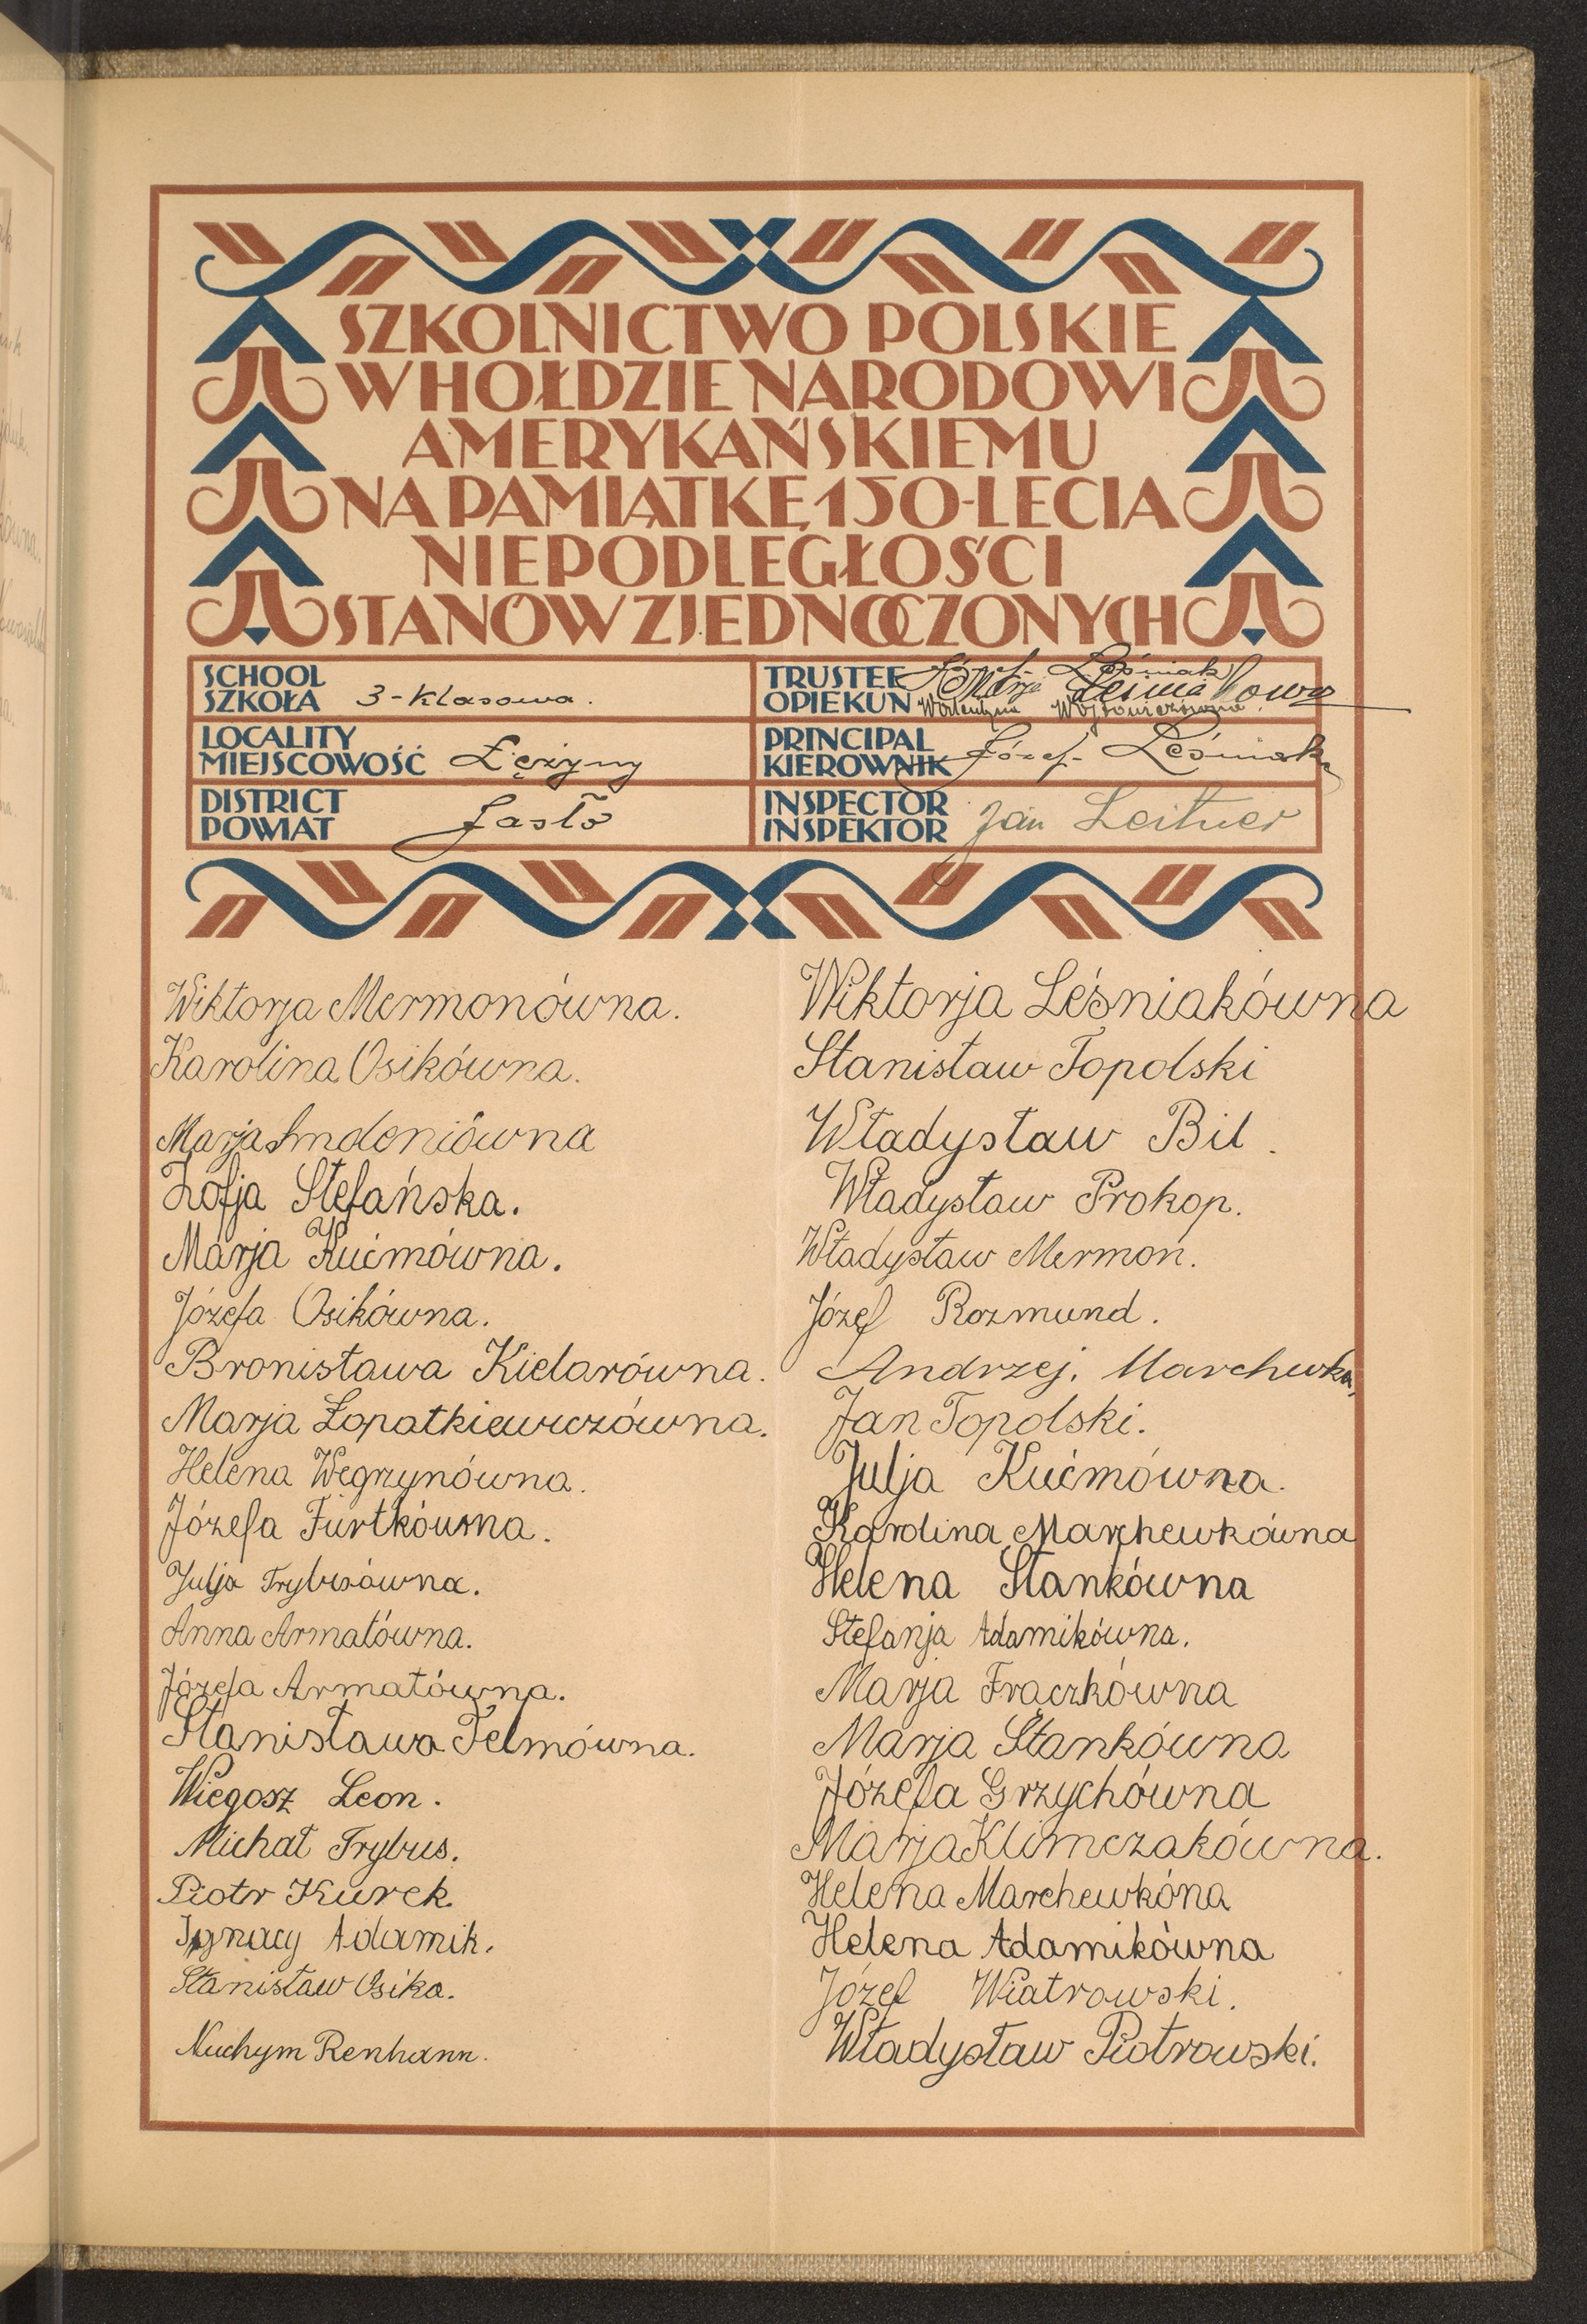 SZKOLNICTWO POLSKIE
W HOŁDZIE NARODOWI
AMERYKAŃSKIEMU
NA PAMIĄTKĘ 150-LECIA
NIEPODLEGŁOŚCI
STANÓW ZJEDNOCZONYCH
SCHOOL
SZKOŁA 3-klasowa.
TRUSTEE Józef Leśniak
OPIEKUN Marja Leśniakowa
Wójtowiczówna
LOCALITY
MIEJSCOWOŚĆ Łężyny
PRINCIPAL
KIEROWNIK Józef Leśniak
DISTRICT
POWIAT Jasło
INSPECTOR
INSPEKTOR Jan Leitner
Wiktorja Mermonówna.
Karolina Osikówna.
Marja Smoleniówna
Zofja Stefańska.
Marja Kućmówna.
Józefa Osikówna.
Bronisława Kielarówna.
Marja Łopatkiewiczówna.
Helena Wegrzynówna.
Józefa Furtkówna.
Julja Trybusówna.
Anna Armatówna.
Józefa Armatówna.
Stanisława Felmówna.
Wiegosz Leon.
Michał Trybus.
Piotr Kurek.
Ignacy Adamik.
Stanisław Osika.
Nuchym Renhann.
Wiktorja Leśniakówna
Stanisław Topolski
Władysław Bil.
Władysław Prokop.
Władysław Mermon.
Józef Rozmund.
Andrzej. Marchewka,
Jan Topolski.
Julja Kućmówna.
Karolina Marchewkówna
Helena Stankówna
Stefanja Adamikówna.
Marja Frączkówna
Marja Stankówna
Józefa Grzychówna
Marja Klimczakówna.
Helena Marchewkóna
Helena Adamikówna
Józef Wiatrowski.
Władysław Piotrowski.